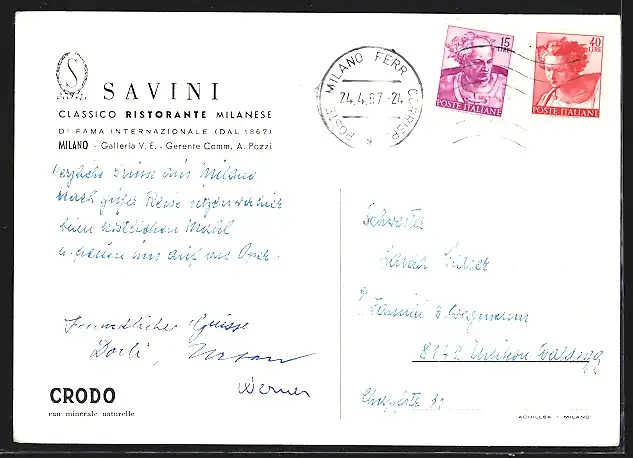 S
SAVINI
SAVINI
CLASSICO RISTORANTE MILANESE
DI FAMA INTERNAZIONALE (DAL 1867)
MILANO - Galleria V. E. - Gerente Comm. A. Pozzi
POSTE MILANO FERR. CORRISP.
24.4.67-24
15 LIRE
POSTE ITALIANE
40 LIRE
POSTE ITALIANE
Herzliche Grüsse aus Milano
Nach guter Reise sitzen wir hier
beim köstlichen Mahl
u. freuen uns auf die Oper.
Freundliche Grüsse
Dorli,
Werner
Schwester
8142 Uitikon Waldegg
CRODO
eau minerale naturelle
ACHILLEA - MILANO